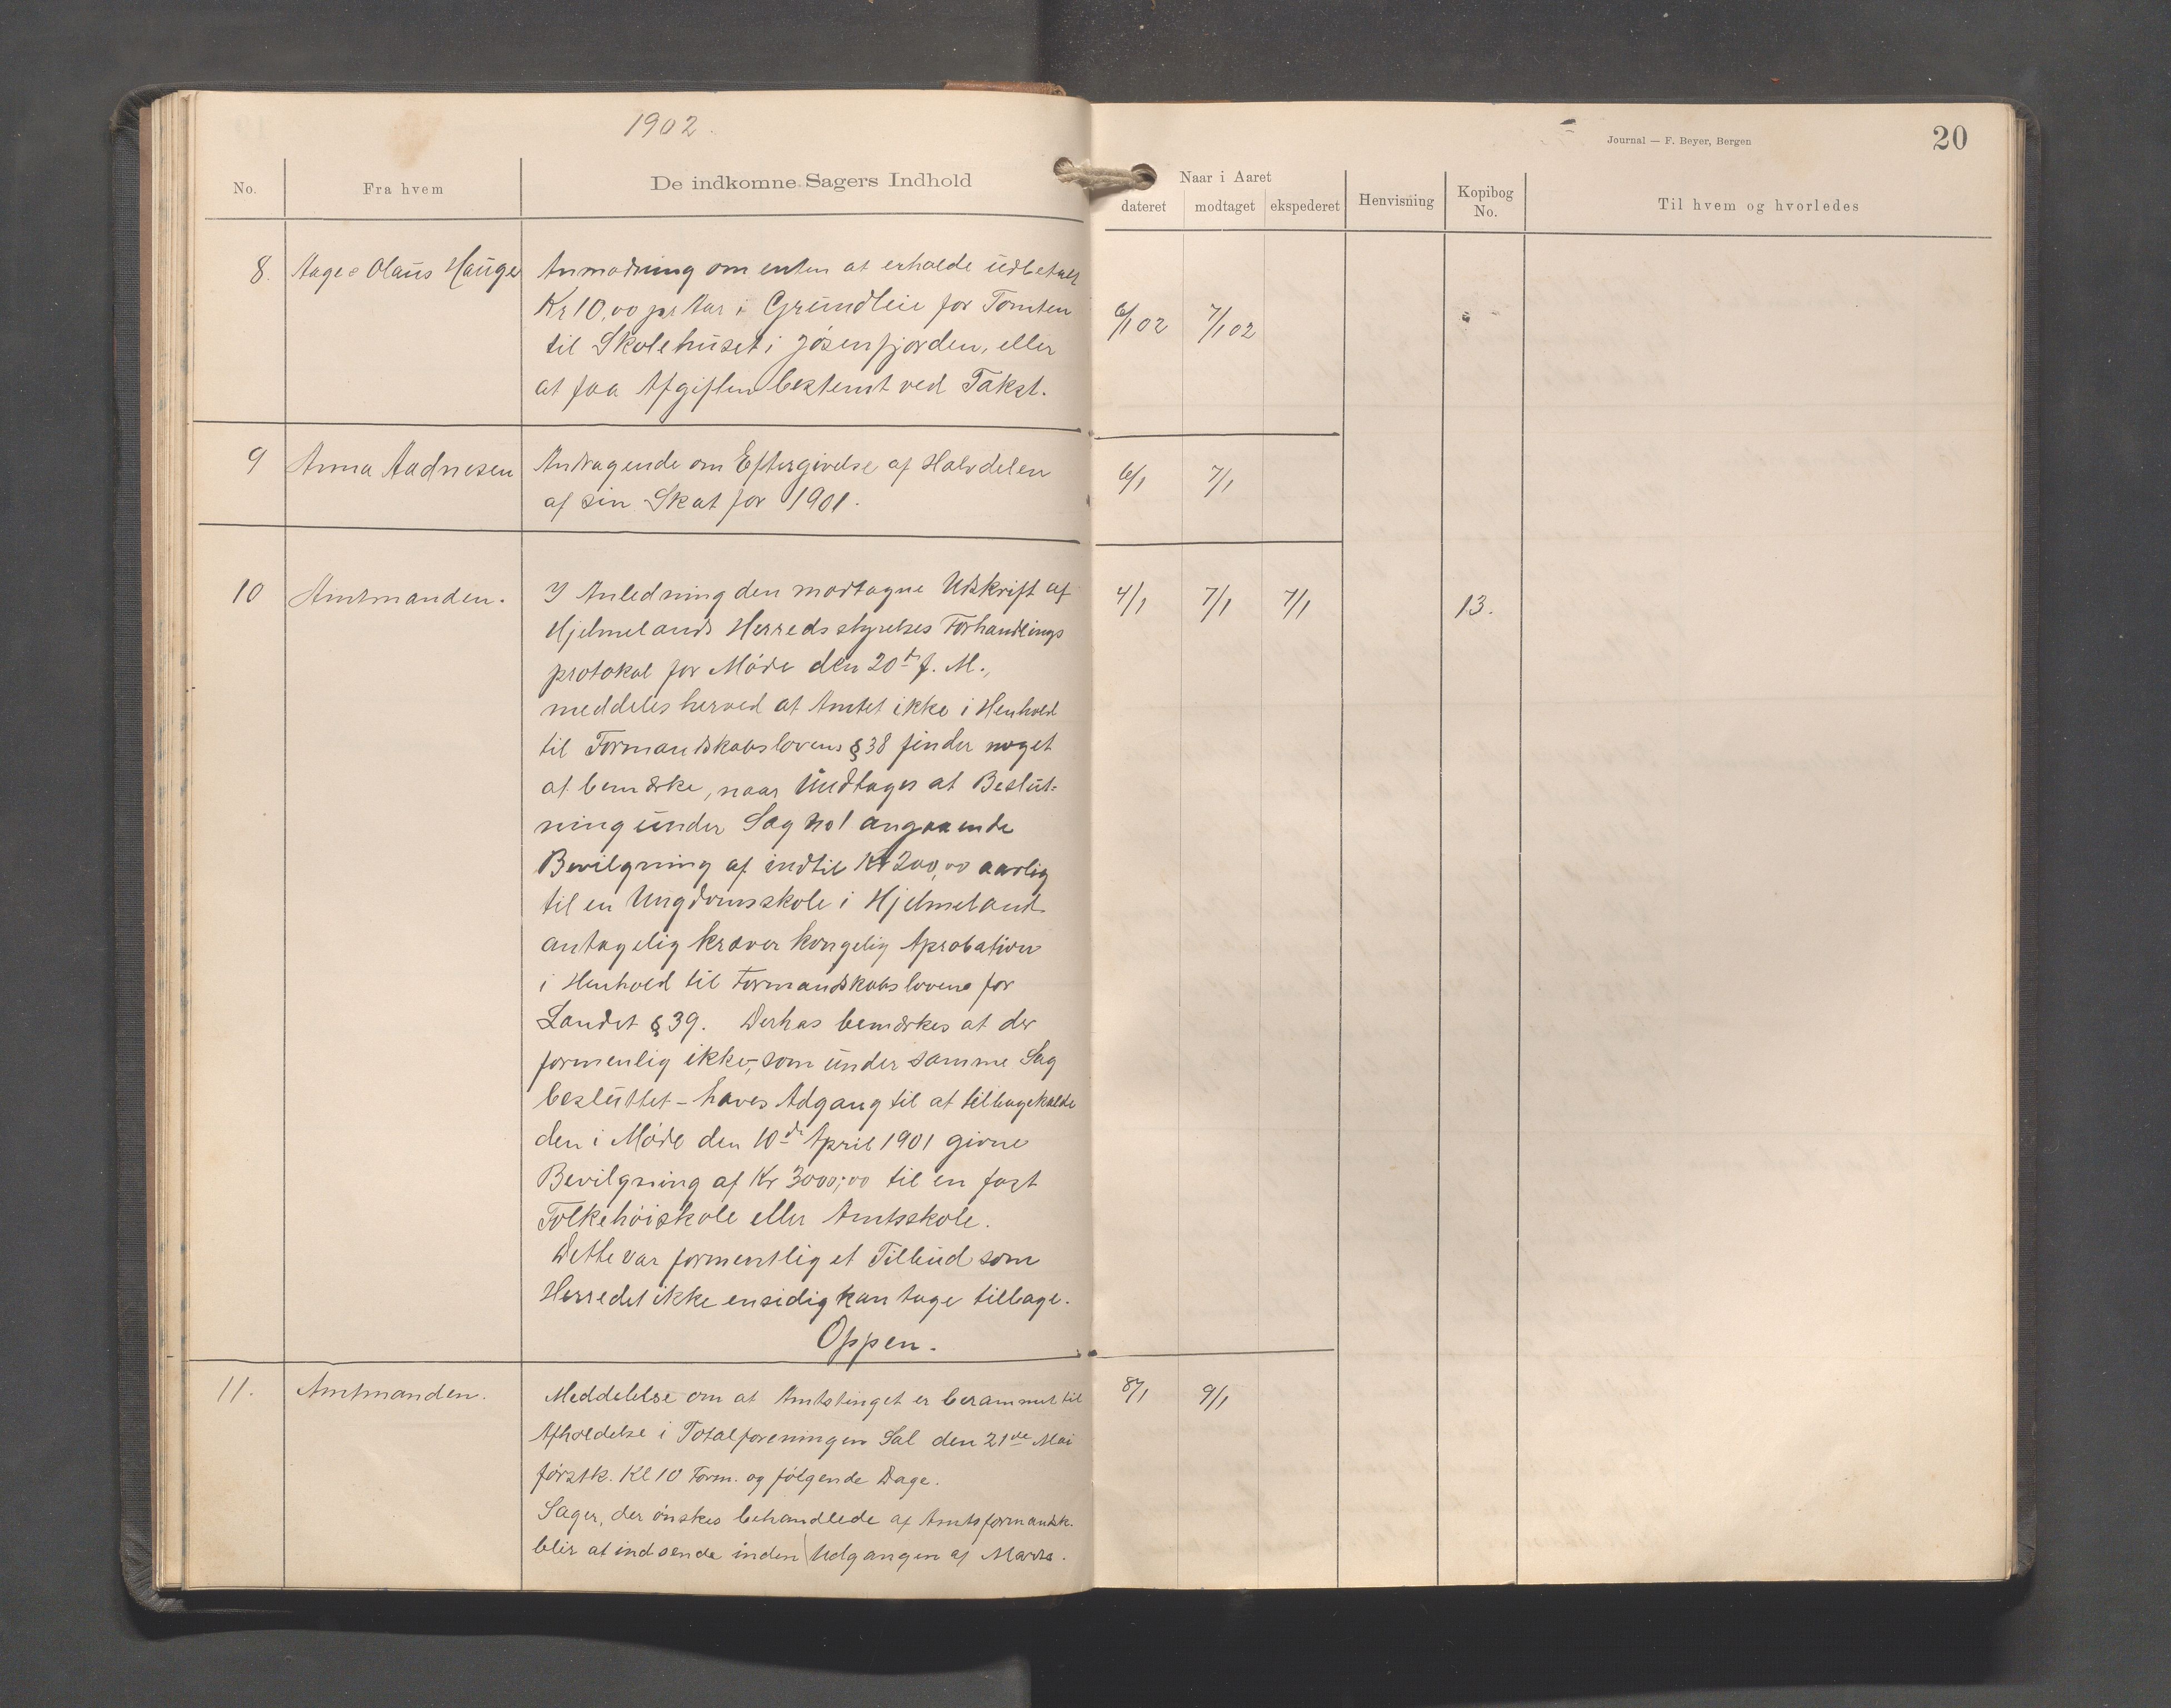 1902.
Journal — F. Beyer, Bergen
20
No. Fra hvem De indkomne Sagers Indhold Naar i Aaret dateret modtaget ekspederet Henvisning Kopibog No. Til hvem og hvorledes
8. Aage Olaus Hauge Anmodning om enten at erholde udbetalt
Kr 10,00 pr Aar i Grundleie for Tomten 6/1 02 7/1 02
til Skolehuset i Jøsenfjorden, eller
at faa Afgiften bestemt ved Takst.
9 Anna Aadnesen Andragende om Eftergivelse af Halvdelen 6/1 7/1
af sin Skat for 1901.
10 Amtmanden. I Anledning den modtagne Udskrift af 4/1 7/1 7/1 13.
Hjelmelands Herredsstyrelses Forhandlings
protokol for Møde den 20de f. M.,
meddeles herved at Amtet ikke i Henhold
til Formandskabslovens § 38 finder noget
at bemærke, naar Undtages at Beslut-
ning under Sag no 1 angaaende
Bevilgning af indtil Kr 200,00 aarlig
til en Ungdomsskole i Hjelmeland
antagelig kræver kongelig Aprobation
i Henhold til Formandskabslovens for
Landet § 39. Derhos bemærkes at der
formenlig ikke, som under samme Sag
besluttet – haves Adgang til at tilbagekalde
den i Møde den 10de April 1901 givne
Bevilgning af Kr 3000,00 til en fast
Folkehøiskole eller Amtsskole.
Dette var formentlig et Tilbud som
Herredet ikke ensidig kan tage tilbage.
Oppen.
11. Amtmanden. Meddelelse om at Amtstinget er berammet til 8/1 9/1
Afholdelse i Totalforeningen Sal den 21de Mai
førstk. Kl 10 Form. og følgende Dage.
Sager, der ønskes behandlede af Amtsformandsk.
blir at indsende inden Udgangen af Marts.